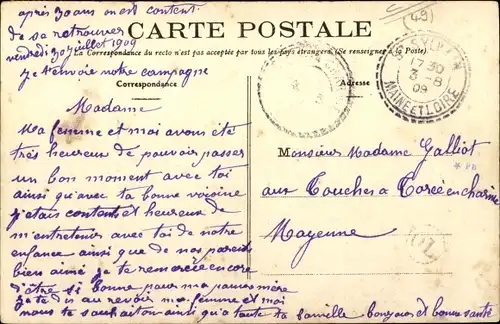 après 30 ans on est content
de sa retrouver
vendredi 30 juillet 1909
je t'envoie notre campagne
(49)
CARTE POSTALE
La Correspondance du recto n'est pas acceptée par tous les pays étrangers. (Se renseigner à la Poste)
Correspondance
Adresse
17 30
3 - 8
09
MAINE ET LOIRE
Madame
Ma femme et moi avons été
très heureux de pouvoir passer
un bon moment avec toi
ainsi qu'avec ta bonne voisine
j'etais contents et heureux de
m'entretenir avec toi de notre
enfance ainsi que de nos parents
bien aimé je te remercie encore
d'être si bonne pour ma pauvre mère
je te dis au revoir ma femme et moi
nous te souhaiton ainsi qu'a toute ta famille bonjour et bonne santé
Monsieur Madame Galliot
aux Touches a Torcé en charnie
Mayenne